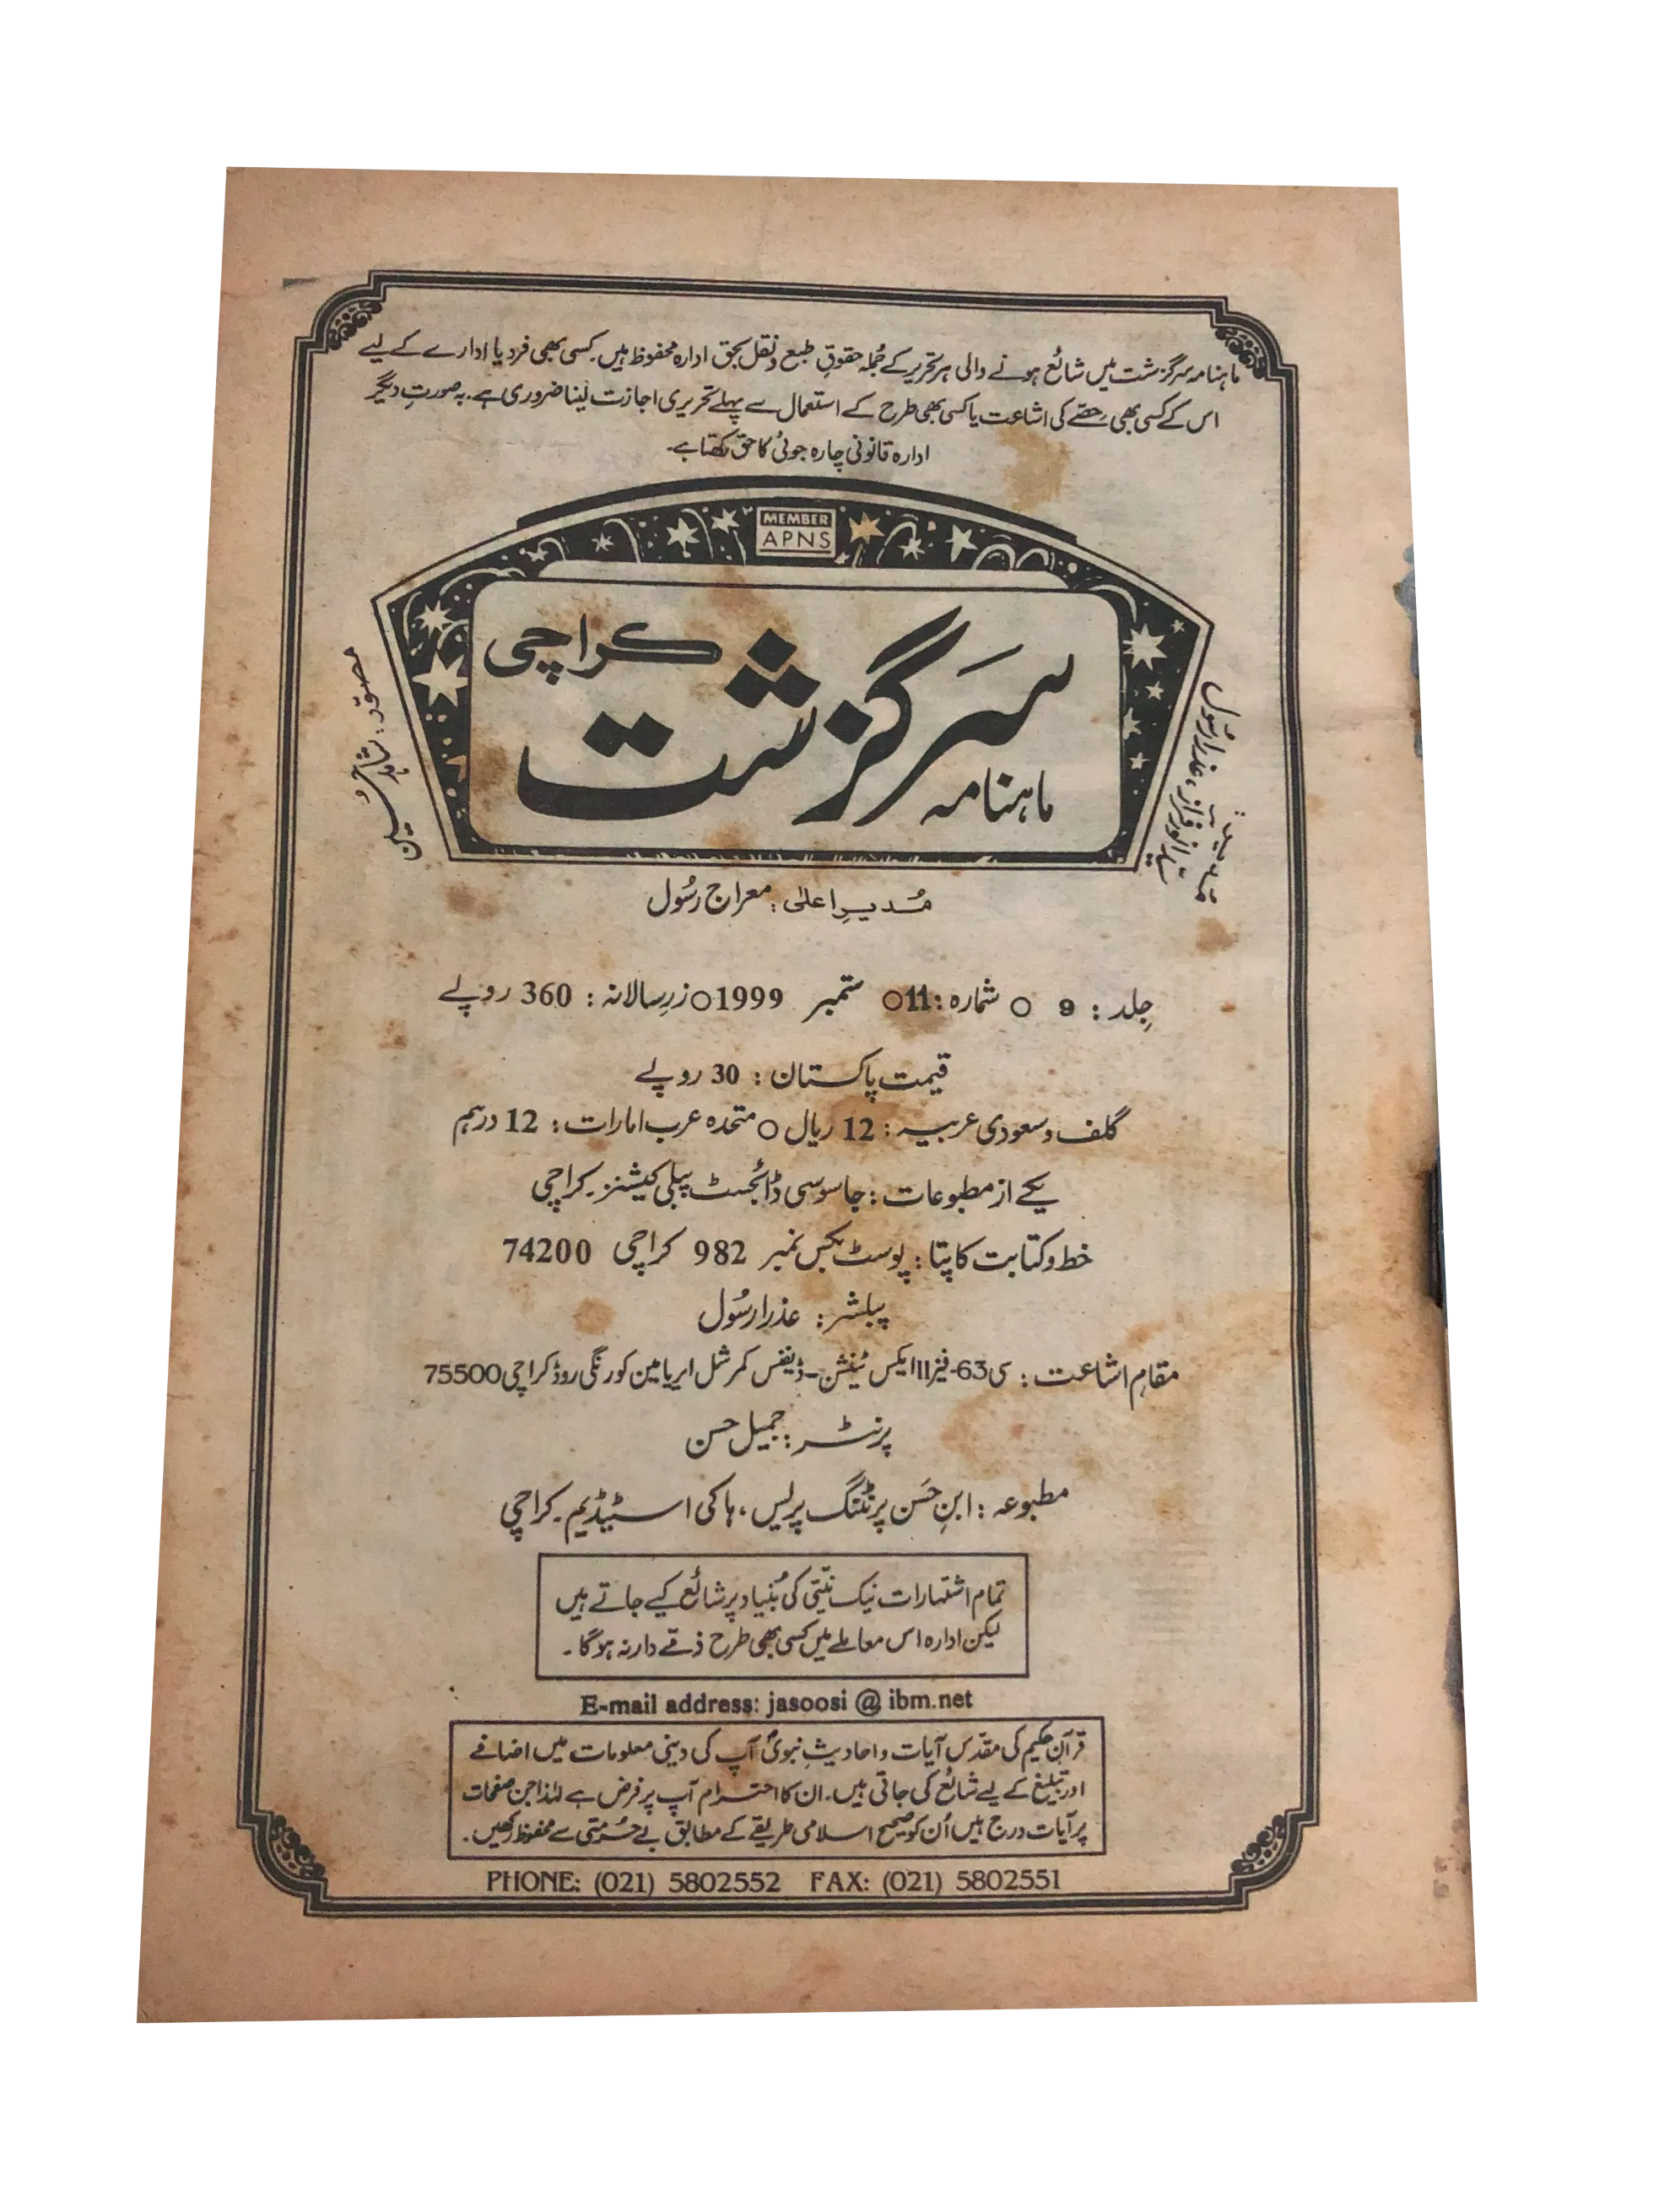 ماہنامہ سرگزشت میں شائع ہونے والی ہر تحریر کے جُملہ حقوقِ طبع و نقل بحق ادارہ محفوظ ہیں۔ کسی بھی فرد یا ادارے کے لیے
اس کے کسی بھی حصّے کی اشاعت یا کسی بھی طرح کے استعمال سے پہلے تحریری اجازت لینا ضروری ہے۔ بہ صورتِ دیگر
ادارہ قانونی چارہ جوئی کا حق رکھتا ہے۔
MEMBER
APNS
کراچی
سَرگزشت
ماہنامہ
مصوّر: شاہد حُسین
انور فراز، عذرا رسُول
مُدیرِ اعلیٰ: معراج رسُول
جِلد: 9 ○ شمارہ: 11 ○ ستمبر 1999 ○ زرِ سالانہ: 360 روپے
قیمت پاکستان: 30 روپے
گلف و سعودی عربیہ: 12 ریال ○ متحدہ عرب امارات: 12 درہم
یکے از مطبوعات: جاسوسی ڈائجسٹ پبلی کیشنز۔ کراچی
خط و کتابت کا پتا: پوسٹ بکس نمبر 982 کراچی 74200
پبلشر: عذرا رسُول
مقامِ اشاعت: سی 63-فیز II ایکس ٹینشن-ڈیفنس کمرشل ایریا مین کورنگی روڈ کراچی 75500
پرنٹر: جمیل حسن
مطبوعہ: ابنِ حَسن پرنٹنگ پریس، ہاکی اسٹیڈیم۔ کراچی
تمام اشتہارات نیک نیّتی کی بُنیاد پر شائع کیے جاتے ہیں
لیکن ادارہ اس معاملے میں کسی بھی طرح ذمّے دار نہ ہوگا۔
E-mail address: jasoosi @ ibm.net
قرآنِ حکیم کی مقدّس آیات و احادیثِ نبویؐ آپ کی دینی معلومات میں اضافے
اور تبلیغ کے لیے شائع کی جاتی ہیں۔ ان کا احترام آپ پر فرض ہے لہٰذا جن صفحات
پر آیات درج ہیں اُن کو صحیح اسلامی طریقے کے مطابق بے حُرمتی سے محفوظ رکھیں۔
PHONE: (021) 5802552 FAX: (021) 5802551